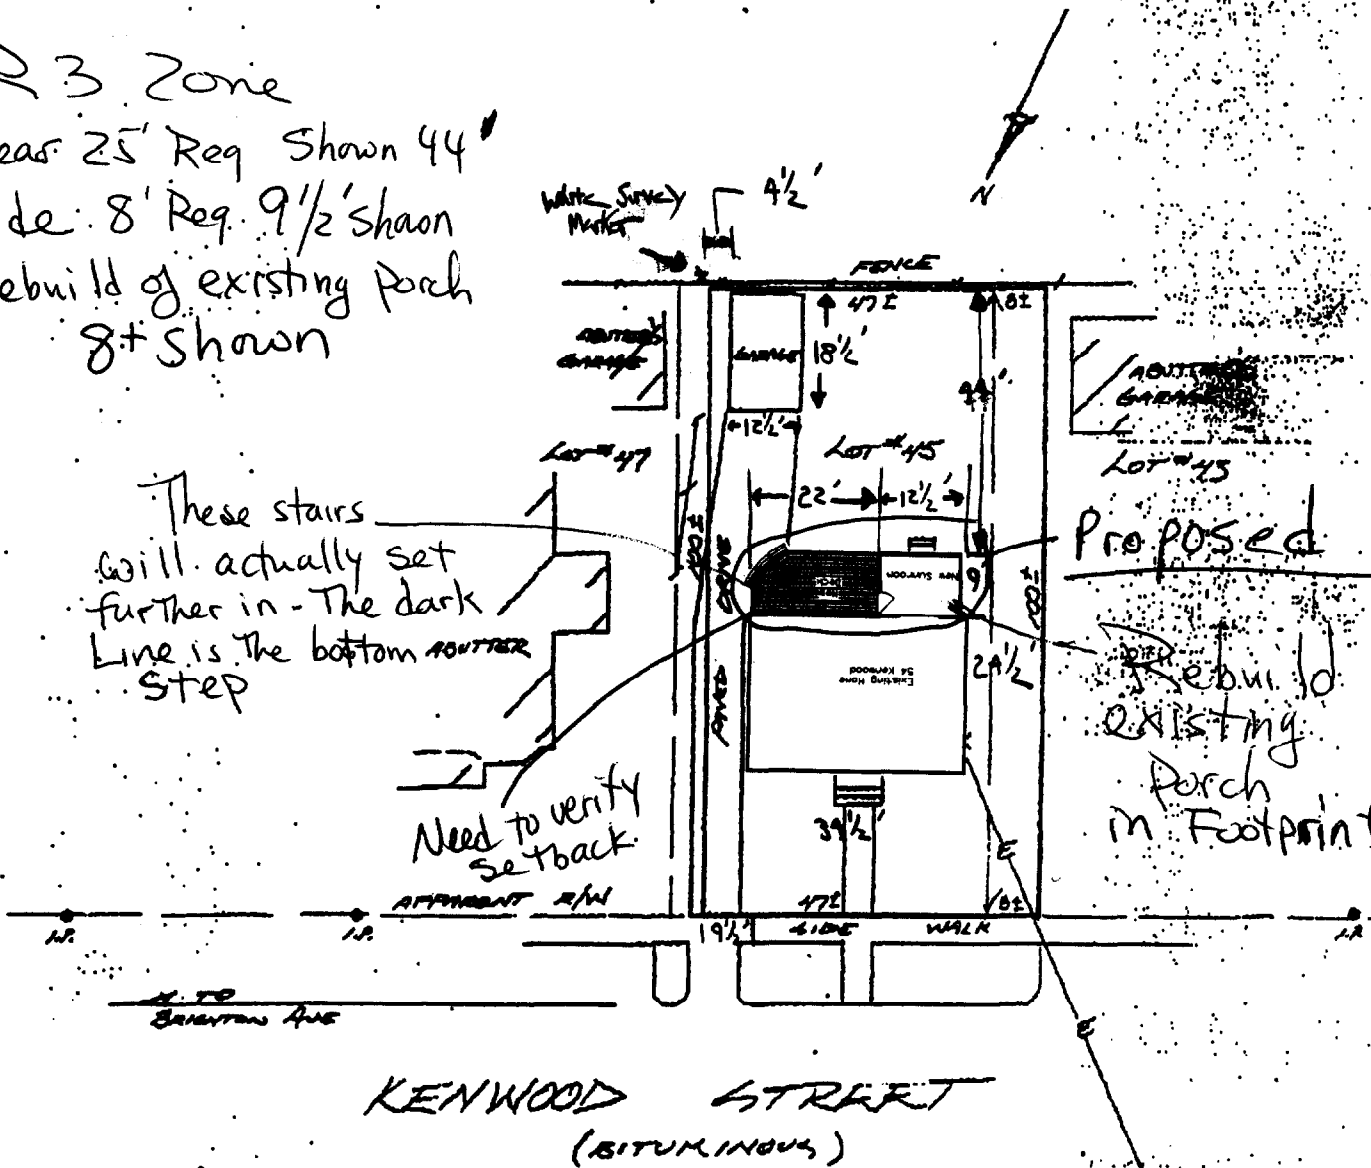 R3 Zone
ear 25' Req Shown 44'
de: 8' Req. 9 1/2' Shown
ebuild of existing Porch
8+ shown
White Survey
Marker
4 1/2'
N
FENCE
47±
8±
ABUTTER'S
GARAGE
GARAGE
18 1/2'
44'
ABUTTER'S
GARAGE
12 1/2'
LOT #47
LOT #45
LOT #43
22'
12 1/2'
These stairs
will actually set
further in - The dark
Line is The bottom
step
ABUTTER
New Sunroom
9'
Proposed
Rebuild
existing
Porch
in Footprint
Existing Home
54 Kenwood
24 1/2'
PAVED
Need to verify
setback
39 1/2'
E
APPARENT R/W
47±
8±
I.P.
I.P.
19 1/2'
SIDE WALK
I.P.
± TO
BRIGHTON AVE
E
KENWOOD STREET
(BITUMINOUS)